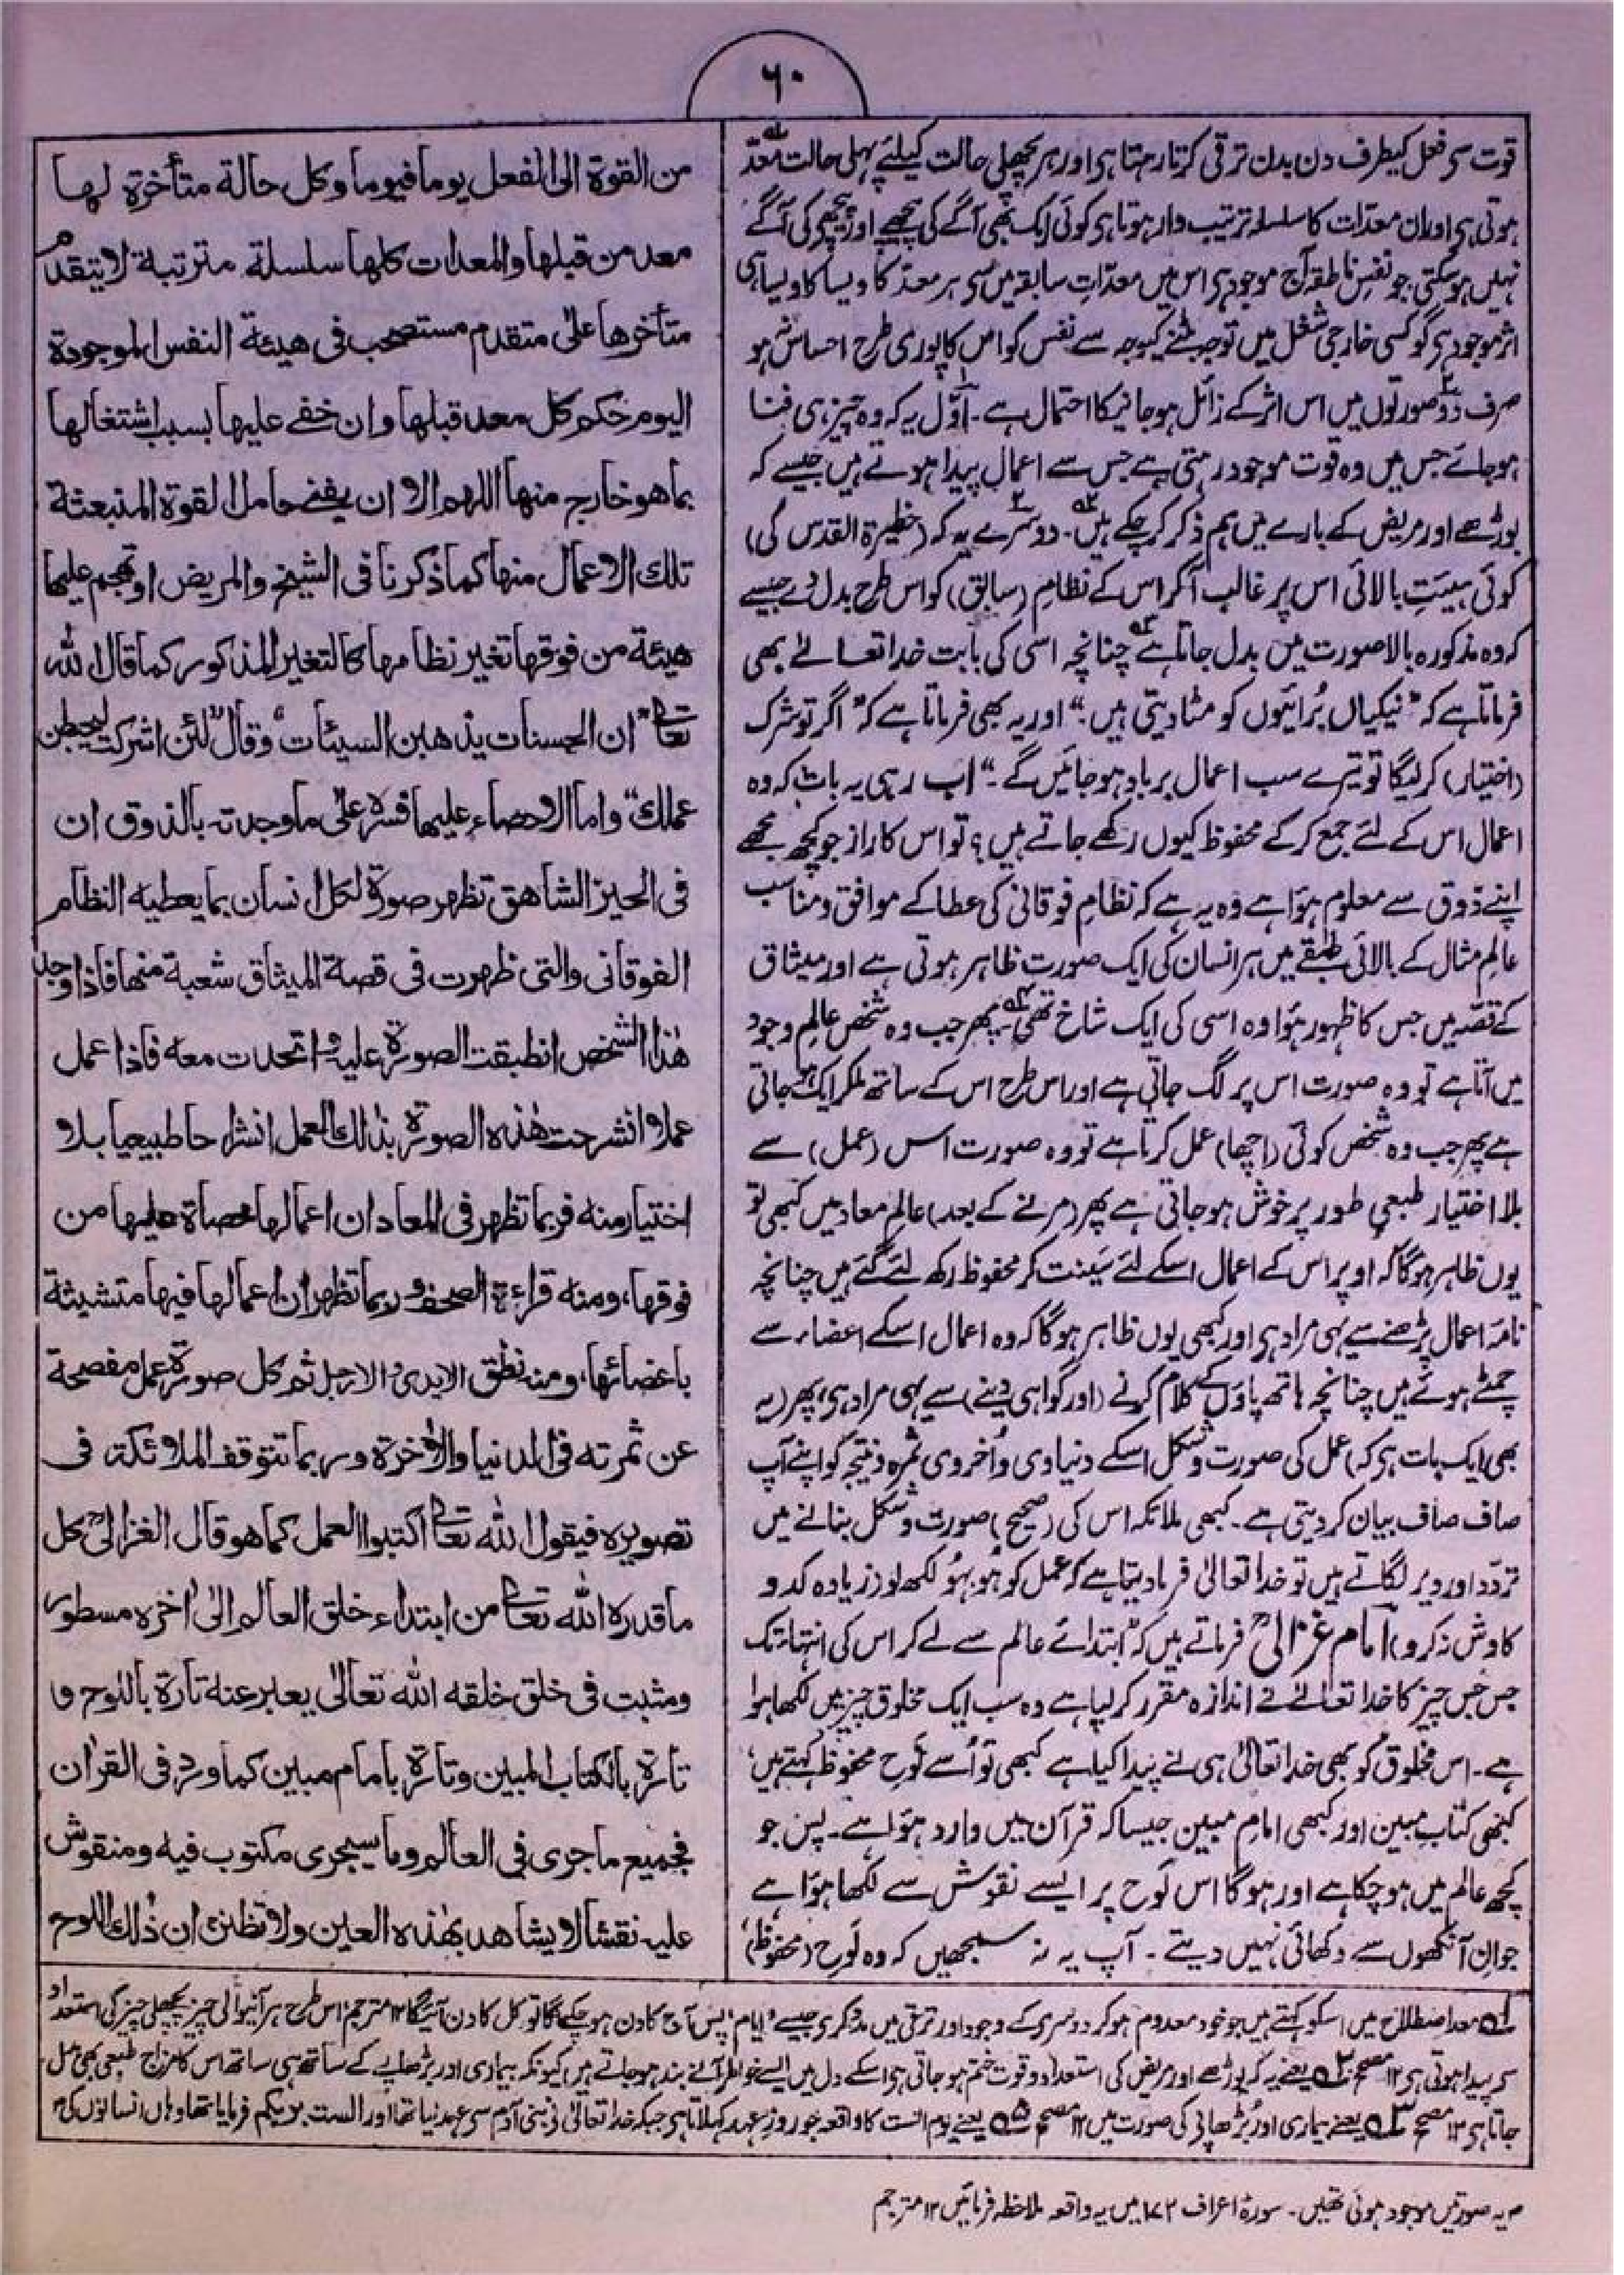 ۶۰
قوت سے فعل کیطرف دن بدن ترقی کرتا رہتا ہی اور ہر پچھلی حالت کیلئے پہلی حالت معدّ
ہوتی ہی اور ان معدّات کا سلسلہ ترتیب وار ہوتا ہی کوئی ایک بھی آگے کی پیچھے اور پیچھے کی آگے
نہیں ہوسکتی جو نفسِ ناطقہ آج موجود ہی اس میں معدّاتِ سابقہ میں سی ہر معدّ کا ویسا کا ویسا ہی
اثر موجود ہی گو کسی خارجی شغل میں توجہ ٹنے کیوجہ سے نفس کو اس کا پوری طرح احساس نہو
صرف دو صورتوں میں اس اثر کے زائل ہو جانیکا احتمال ہے۔ اوّل یہ کہ وہ چیز ہی فنا
ہو جائے جس میں وہ قوت موجود رہتی ہے جس سے اعمال پیدا ہوتے ہیں جیسے کہ
بوڑھے اور مریض کے بارے میں ہم ذکر کر چکے ہیں۔ دوسرے یہ کہ (حظیرۃ القدس کی)
کوئی ہیئتِ بالائی اس پر غالب آکر اس کے نظامِ (سابق) کو اس طرح بدل دے جیسے
کہ وہ مذکورہ بالا صورت میں بدل جاتا ہے چنانچہ اسی کی بابت خدا تعالےٰ بھی
فرماتا ہے کہ "نیکیاں بُرائیوں کو مٹا دیتی ہیں۔" اور یہ بھی فرماتا ہے کہ "اگر تو شرک
(اختیار) کرلیگا تو تیرے سب اعمال برباد ہو جائیں گے۔" اب رہی یہ بات کہ وہ
اعمال اس کے لئے جمع کر کے محفوظ کیوں رکھے جاتے ہیں؟ تو اس کا راز جو کچھ مجھے
اپنے ذوق سے معلوم ہوا ہے وہ یہ ہے کہ نظامِ فوقانی کی عطا کے موافق و مناسب
عالمِ مثال کے بالائی طبقے میں ہر انسان کی ایک صورت ظاہر ہوتی ہے اور میثاق
کے قصّہ میں جس کا ظہور ہوا وہ اسی کی ایک شاخ تھی پھر جب وہ شخص عالمِ وجود
میں آتا ہے تو وہ صورت اس پر لگ جاتی ہے اور اس طرح اس کے ساتھ ملکر ایک ہو جاتی
ہے پھر جب وہ شخص کوئی (اچھا) عمل کرتا ہے تو وہ صورت اس (عمل) سے
بلا اختیار طبعی طور پر خوش ہو جاتی ہے پھر (مرنے کے بعد) عالمِ معاد میں کبھی تو
یوں ظاہر ہوگا کہ اوپر اس کے اعمال اسکے لئے سَینت کر محفوظ رکھ لئے گئے ہیں چنانچہ
نامۂ اعمال پڑھنے سے یہی مراد ہی اور کبھی یوں ظاہر ہوگا کہ وہ اعمال اسکے اعضاء سے
چمٹے ہوئے ہیں چنانچہ ہاتھ پاؤں کے کلام کرنے (اور گواہی دینے) سے یہی مراد ہی پھر (یہ
بھی ایک بات ہی کہ) عمل کی صورت و شکل اسکے دنیاوی و اُخروی ثمرہ و نتیجہ کو اپنے آپ
صاف صاف بیان کر دیتی ہے۔ کبھی ملائکہ اس کی (صحیح) صورت و شکل بنانے میں
تردّد اور دیر لگاتے ہیں تو خدا تعالیٰ فرما دیتا ہے کہ عمل کو ہو بہو لکھ لو (زیادہ کد و
کاوش نہ کرو) امام غزالیؒ فرماتے ہیں کہ "ابتدائے عالم سے لے کر اس کی انتہا تک
جس جس چیز کا خدا تعالےٰ نے اندازہ مقرر کر لیا ہے وہ سب ایک مخلوق چیز میں لکھا ہوا
ہے۔ اس مخلوق کو بھی خدا تعالیٰ ہی نے پیدا کیا ہے کبھی تو اُسے لَوح محفوظ کہتے ہیں،
کبھی کتابِ مبین اور کبھی امامِ مبین جیسا کہ قرآن میں وارد ہوا ہے۔ پس جو
کچھ عالم میں ہو چکا ہے اور ہوگا اس لَوح پر ایسے نقوش سے لکھا ہوا ہے
جو ان آنکھوں سے دکھائی نہیں دیتے۔ آپ یہ نہ سمجھیں کہ وہ لَوح (محفوظ)
من القوة الى الفعل يوما فيوما وكل حالة متأخرة لها
معد من قبلها والمعدات كلها سلسلة مترتبة لا يتقدم
متأخرها على متقدم مستصحب فى هيئة النفس الموجودة
اليوم حكم كل معد قبلها وان خفے عليها بسبب اشتغالها
بما هو خارج منها اللهم الا ان يفنے حامل القوة المنبعثة
تلك الاعمال منها كما ذكرنا فى الشيخ والمريض او تهجم عليها
هيئة من فوقها تغير نظامها كالتغير المذكور كما قال الله
تعالى "ان الحسنات يذهبن السيئات" وقال "لئن اشركت ليحبطن
عملك" واما الاحصاء عليها فسره على ما وجدته بالذوق ان
فى الحيز الشاهق تظهر صورة لكل انسان بما يعطيه النظام
الفوقانى والتى ظهرت فى قصة الميثاق شعبة منها فاذا وجد
هذا الشخص انطبقت الصورة عليه واتحدت معه فاذا عمل
عملا انشرحت هذه الصورة بذلك العمل انشراحا طبيعيا بلا
اختيار منه فربما تظهر فى المعاد ان اعمالها محصاة عليها من
فوقها، ومنه قراءة الصحف وربما تظهر ان اعمالها فيها متشبثة
باعضائها، ومنه نطق الايدى والارجل ثم كل صورة عمل مفصحة
عن ثمرته فى الدنيا والاٰخرة وربما تتوقف الملائكة فى
تصويره فيقول الله تعالى اكتبوا العمل كما هو قال الغزالىؒ كل
ما قدره الله تعالى من ابتداء خلق العالم الى اٰخره مسطور
ومثبت فى خلق خلقه الله تعالى يعبر عنه تارة باللوح و
تارة بالكتاب المبين وتارة بامام مبين كما ورد فى القراٰن
فجميع ما جرى فى العالم وما سيجرى مكتوب فيه ومنقوش
عليه نقشا لا يشاهد بهذه العين ولا تظنن ان ذلك اللوح
لہ معد اصطلاح میں اسکو کہتے ہیں جو خود معدوم ہو کر دوسری کے وجود اور ترقی میں مددگر ہی جیسے "ایام" پس آج کا دن ہو چکے گا تو کل کا دن آئیگا ۱۲ مترجم اس طرح ہر آنیوالی چیز پچھلی چیز کی استعداد
سی پیدا ہوتی ہی ۱۲ مصحح ۲ یعنے یہ کہ بوڑھے اور مریض کی استعداد و قوت ختم ہو جاتی ہی اسکے دل میں ایسے خواطر آنے بند ہو جاتے ہیں کیونکہ بیماری اور بڑھاپے کے ساتھ ہی ساتھ اس کا مزاج طبعی بھی بدل
جاتا ہی ۱۲ مصحح ۳ یعنے بیماری اور بُڑھاپی کی صورت میں ۱۲ مصحح ۵ یعنے یوم الست کا واقعہ جو روزِ عہد کہلاتا ہی جبکہ خدا تعالیٰ نے بنی آدم سی عہد لیا تھا اور الست بربکم فرمایا تھا وہاں انسانوں کی
یہ صورتیں موجود ہوئی تھیں۔ سورۂ اعراف ۱۷۲ میں یہ واقعہ ملاحظہ فرمائیں ۱۲ مترجم